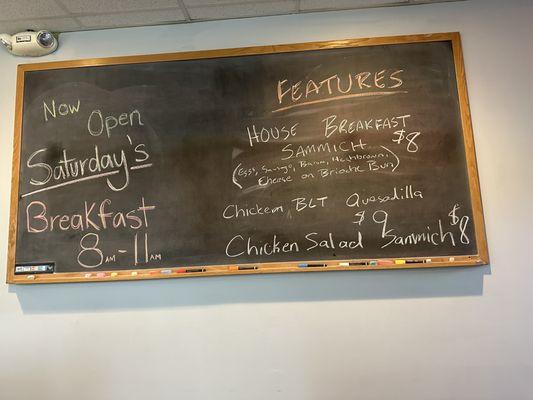 Now
Open
Saturday's
Breakfast
8AM-11AM
FEATURES
HOUSE BREAKFAST
SAMMICH $8
(Eggs, Sausage, Bacon, Hashbrown,
Cheese on Brioche Bun)
Chicken BLT Quesadilla
$9
Chicken Salad Sammich $8